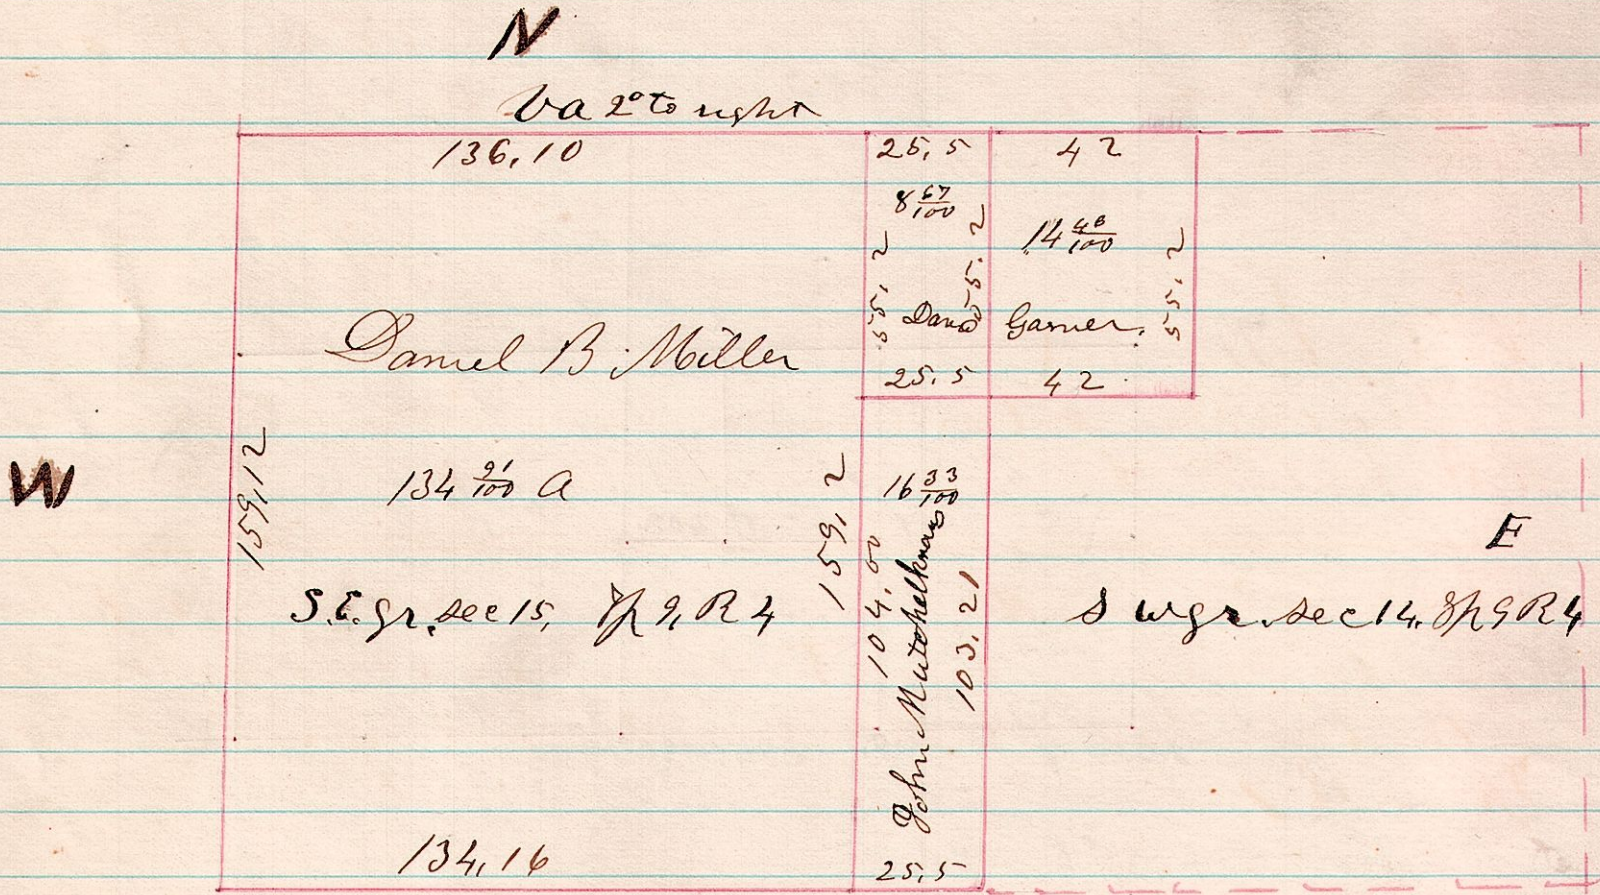 N
Va 2° to right
136,10
25,5
42
8 67/100
14 48/100
55,2
55,2
55,2
David Garner.
Daniel B Miller
25,5
42
W
159,12
134 91/100 A
159,2
16 33/100
E
104,00
John
103,21
S.E. qr. sec 15, Tp 9, R 4
S W qr. sec 14, Tp 9 R 4
134,16
25,5